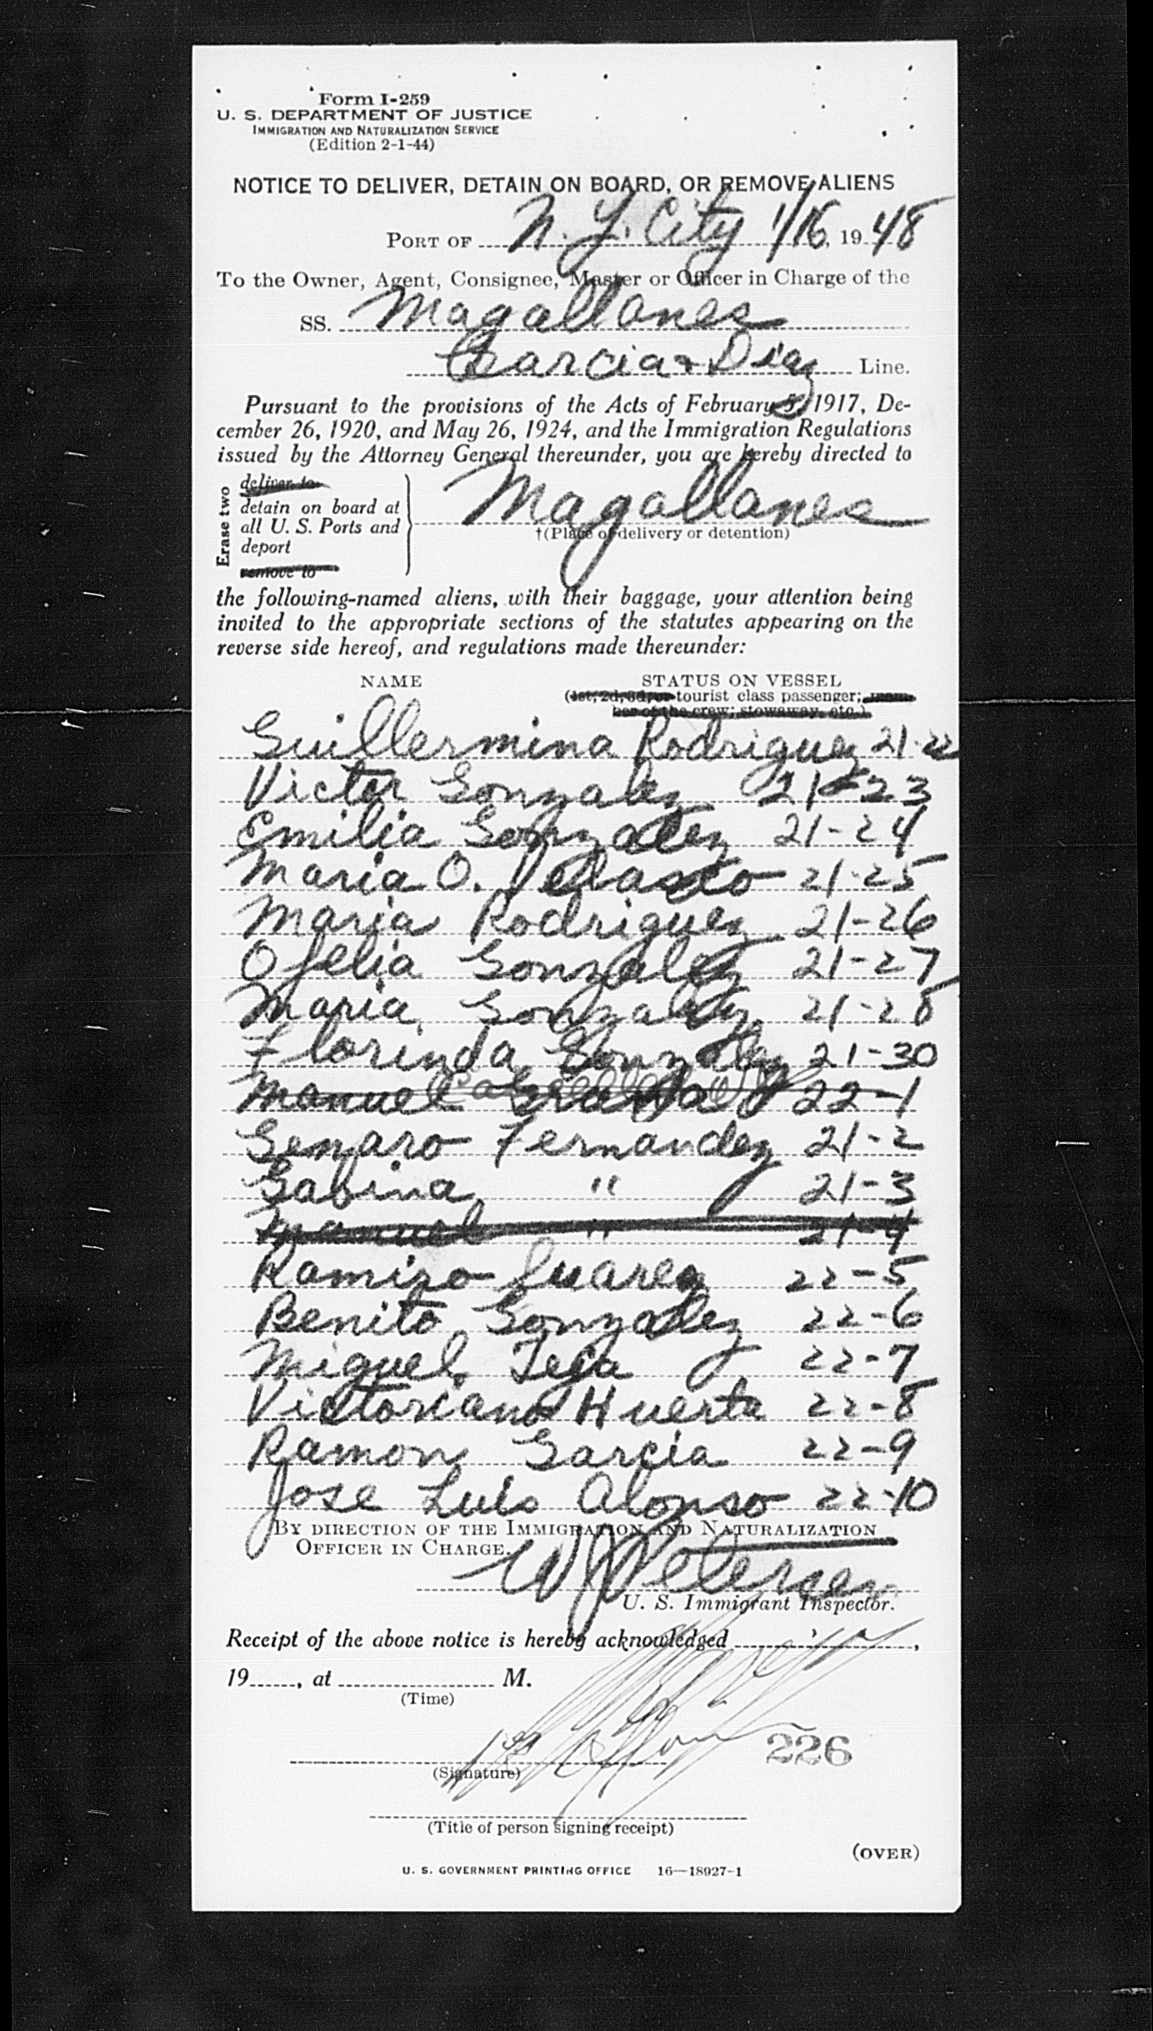 Form I-259
U. S. DEPARTMENT OF JUSTICE
IMMIGRATION AND NATURALIZATION SERVICE
(Edition 2-1-44)
NOTICE TO DELIVER, DETAIN ON BOARD, OR REMOVE ALIENS
PORT OF N. Y. City 1/16, 1948
To the Owner, Agent, Consignee, Master or Officer in Charge of the
SS. Magallanes
Garcia & Diaz Line.
Pursuant to the provisions of the Acts of February 5, 1917, De-
cember 26, 1920, and May 26, 1924, and the Immigration Regulations
issued by the Attorney General thereunder, you are hereby directed to
Erase two
deliver to
detain on board at
all U. S. Ports and
deport
remove to
Magallanes
†(Place of delivery or detention)
the following-named aliens, with their baggage, your attention being
invited to the appropriate sections of the statutes appearing on the
reverse side hereof, and regulations made thereunder:
NAME STATUS ON VESSEL
(1st, 2d, 3d, or tourist class passenger; mem-
ber of the crew; stowaway, etc.)
Guillermina Rodriguez 21-22
Victor Gonzalez 21-23
Emilia Gonzalez 21-24
Maria O. Velasco 21-25
Maria Rodriguez 21-26
Ofelia Gonzalez 21-27
Maria Gonzalez 21-28
Florinda Gonzalez 21-30
Manuel 22-1
Genaro Fernandez 21-2
Sabina " 21-3
Manuel " 21-4
Ramiro Suarez 22-5
Benito Gonzalez 22-6
Miguel Teja 22-7
Victoriano Huerta 22-8
Ramon Garcia 22-9
Jose Luis Alonso 22-10
BY DIRECTION OF THE IMMIGRATION AND NATURALIZATION
OFFICER IN CHARGE.
W J Petersen
U. S. Immigrant Inspector.
Receipt of the above notice is hereby acknowledged ,
19 , at M.
(Time)
226
(Signature)
(Title of person signing receipt)
(OVER)
U. S. GOVERNMENT PRINTING OFFICE 16—18927-1